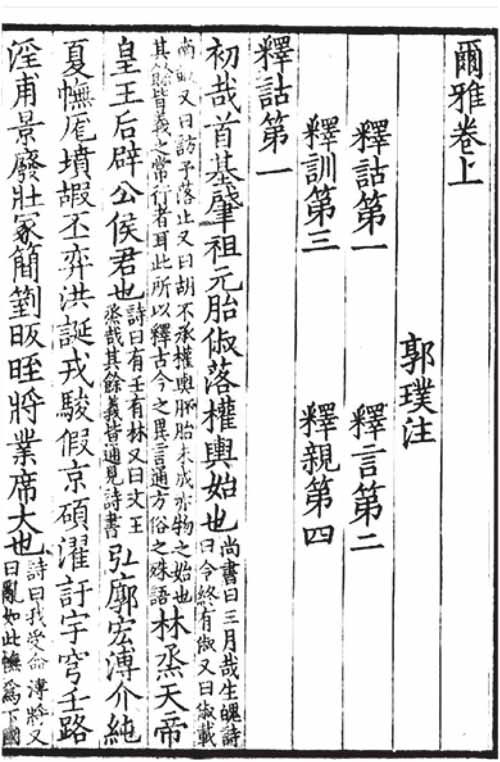 爾雅卷上
郭璞注
釋詁第一 釋言第二
釋訓第三 釋親第四
釋詁第一
初哉首基肇祖元胎俶落權輿始也尚書曰三月哉生魄詩曰令終有俶又曰俶載
南畝又曰訪予落止又曰胡不承權輿胚胎未成亦物之始也其餘皆義之常行者耳此所以釋古今之異言通方俗之殊語林烝天帝
皇王后辟公侯君也詩曰有壬有林又曰文王烝哉其餘義皆通見詩書弘廓宏溥介純
夏幠厖墳嘏丕弈洪誕戎駿假京碩濯訏宇穹壬路
淫甫景廢壯冢簡箌昄晊將業席大也詩曰我受命溥將又曰亂如此幠爲下國